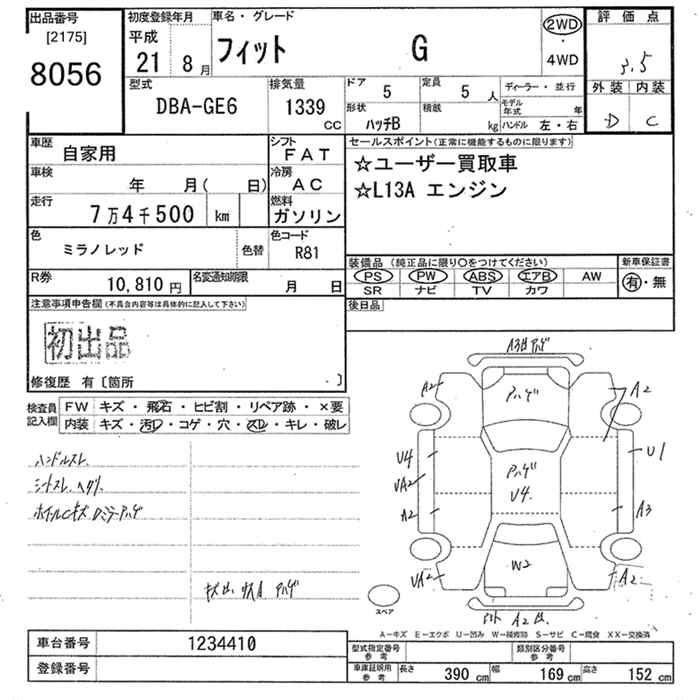 出品番号
[2175]
8056
初度登録年月
平成
21 8月
車名・グレード
フィット G
2WD
・
4WD
評価点
3.5
外装 内装
D C
型式
DBA-GE6
排気量
1339
CC
ドア
5
定員
5 人
形状
ハッチB
積載
kg
ディーラー・並行
モデル年式 年
ハンドル 左・右
車歴
自家用
シフト
FAT
車検
年 月( 日)
冷房
AC
走行
7万4千500 km
燃料
ガソリン
色
ミラノレッド
色替
色コード
R81
R券
10,810 円
名変通知期限
月 日
セールスポイント(正常に機能するものに限ります)
☆ユーザー買取車
☆L13A エンジン
装備品 (純正品に限り○をつけてください)
PS PW ABS エアB AW
SR ナビ TV カワ
新車保証書
有・無
後日品
注意事項申告欄(不具合内容等は具体的に記入して下さい)
初出品
修復歴 有〔箇所 〕
検査員
記入欄
FW キズ・飛石・ヒビ割・リペア跡・×要
内装 キズ・汚レ・コゲ・穴・スレ・キレ・破レ
ハンドルスレ
A2
A2
U4
UA2
A2
U4
W2
U1
A3
UA2
A2
スペア
A-キズ E-エクボ U-凹み W-補修跡 S-サビ C-腐食 XX-交換済
車台番号
1234410
登録番号
型式指定番号
参考
類別区分番号
参考
車庫証明用
参考
長さ 390 cm 幅 169 cm 高さ 152 cm